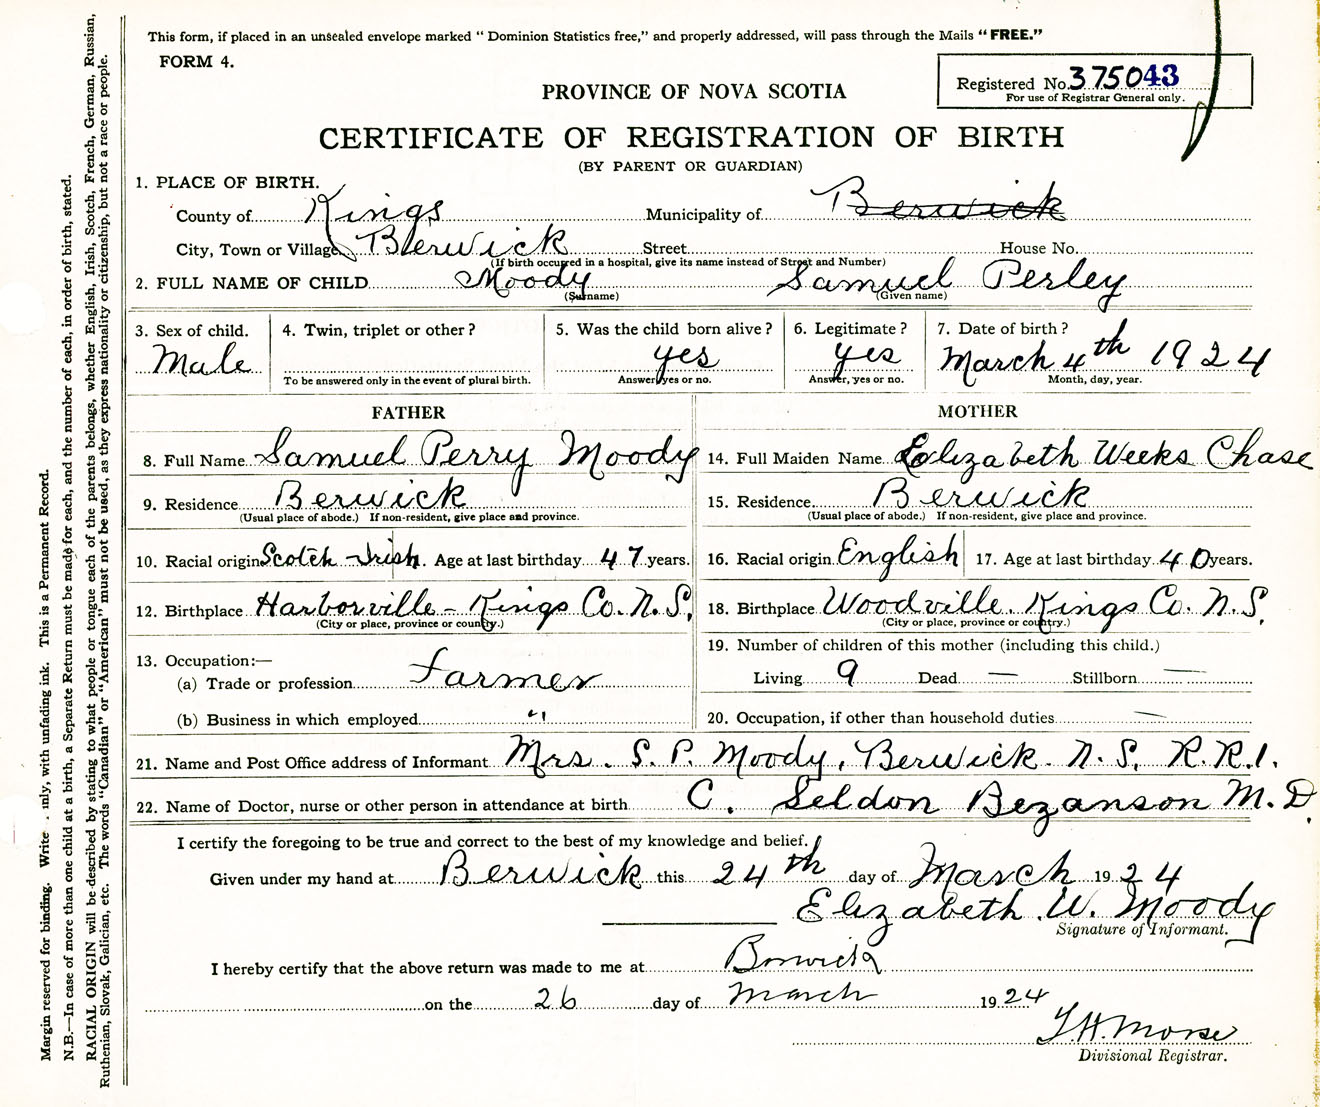 This form, if placed in an unsealed envelope marked "Dominion Statistics free," and properly addressed, will pass through the Mails "FREE."
FORM 4.
Registered No. 375043
For use of Registrar General only.
PROVINCE OF NOVA SCOTIA
CERTIFICATE OF REGISTRATION OF BIRTH
(BY PARENT OR GUARDIAN)
1. PLACE OF BIRTH.
County of Kings Municipality of Berwick
City, Town or Village Berwick Street House No.
(If birth occurred in a hospital, give its name instead of Street and Number)
2. FULL NAME OF CHILD Moody Samuel Perley
(Surname) (Given name)
3. Sex of child. 4. Twin, triplet or other? 5. Was the child born alive? 6. Legitimate? 7. Date of birth?
Male yes yes March 4th 1924
To be answered only in the event of plural birth. Answer, yes or no. Answer, yes or no. Month, day, year.
FATHER MOTHER
8. Full Name Samuel Perry Moody 14. Full Maiden Name Elizabeth Weeks Chase
9. Residence Berwick 15. Residence Berwick
(Usual place of abode.) If non-resident, give place and province. (Usual place of abode.) If non-resident, give place and province.
10. Racial origin Scotch-Irish. Age at last birthday 47 years. 16. Racial origin English 17. Age at last birthday 40 years.
12. Birthplace Harborville - Kings Co. N.S. 18. Birthplace Woodville. Kings Co. N.S.
(City or place, province or country.) (City or place, province or country.)
13. Occupation:— 19. Number of children of this mother (including this child.)
(a) Trade or profession Farmer Living 9 Dead — Stillborn —
(b) Business in which employed " 20. Occupation, if other than household duties —
21. Name and Post Office address of Informant Mrs. S. P. Moody, Berwick. N.S. R.R.1.
22. Name of Doctor, nurse or other person in attendance at birth C. Seldon Bezanson M.D.
I certify the foregoing to be true and correct to the best of my knowledge and belief.
Given under my hand at Berwick this 24th day of March 1924
Elizabeth W. Moody
Signature of Informant.
I hereby certify that the above return was made to me at Berwick
on the 26 day of March 1924
Divisional Registrar.
Margin reserved for binding. Write nly, with unfading ink. This is a Permanent Record.
N.B.—In case of more than one child at a birth, a Separate Return must be made for each, and the number of each, in order of birth, stated.
RACIAL ORIGIN will be described by stating to what people or tongue each of the parents belongs, whether English, Irish, Scotch, French, German, Russian,
Ruthenian, Slovak, Galician, etc. The words "Canadian" or "American" must not be used, as they express nationality or citizenship, but not a race or people.